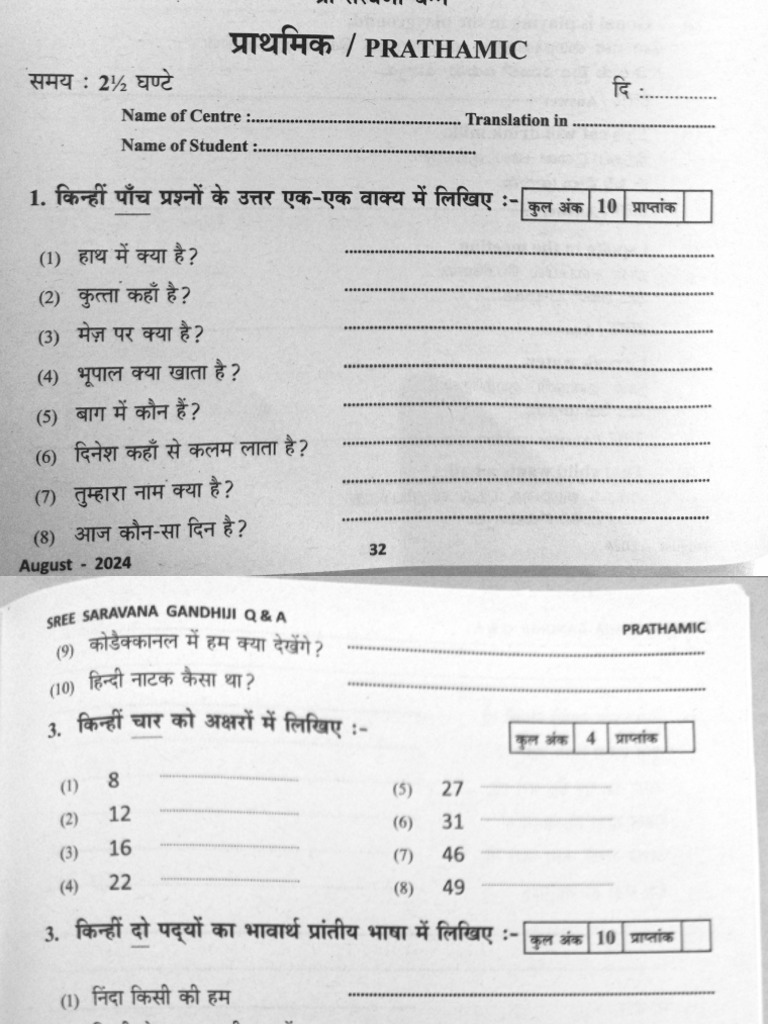 प्राथमिक / PRATHAMIC
समय : 2½ घण्टे दि :..............
Name of Centre :........................................... Translation in ..............................
Name of Student :.............................................
1. किन्हीं पाँच प्रश्नों के उत्तर एक-एक वाक्य में लिखिए :- कुल अंक 10 प्राप्तांक
(1) हाथ में क्या है?
(2) कुत्ता कहाँ है?
(3) मेज़ पर क्या है?
(4) भूपाल क्या खाता है?
(5) बाग में कौन हैं?
(6) दिनेश कहाँ से कलम लाता है?
(7) तुम्हारा नाम क्या है?
(8) आज कौन-सा दिन है?
August - 2024 32
SREE SARAVANA GANDHIJI Q & A PRATHAMIC
(9) कोडैक्कानल में हम क्या देखेंगे?
(10) हिन्दी नाटक कैसा था?
3. किन्हीं चार को अक्षरों में लिखिए :- कुल अंक 4 प्राप्तांक
(1) 8 (5) 27
(2) 12 (6) 31
(3) 16 (7) 46
(4) 22 (8) 49
3. किन्हीं दो पद्यों का भावार्थ प्रांतीय भाषा में लिखिए :- कुल अंक 10 प्राप्तांक
(1) निंदा किसी की हम